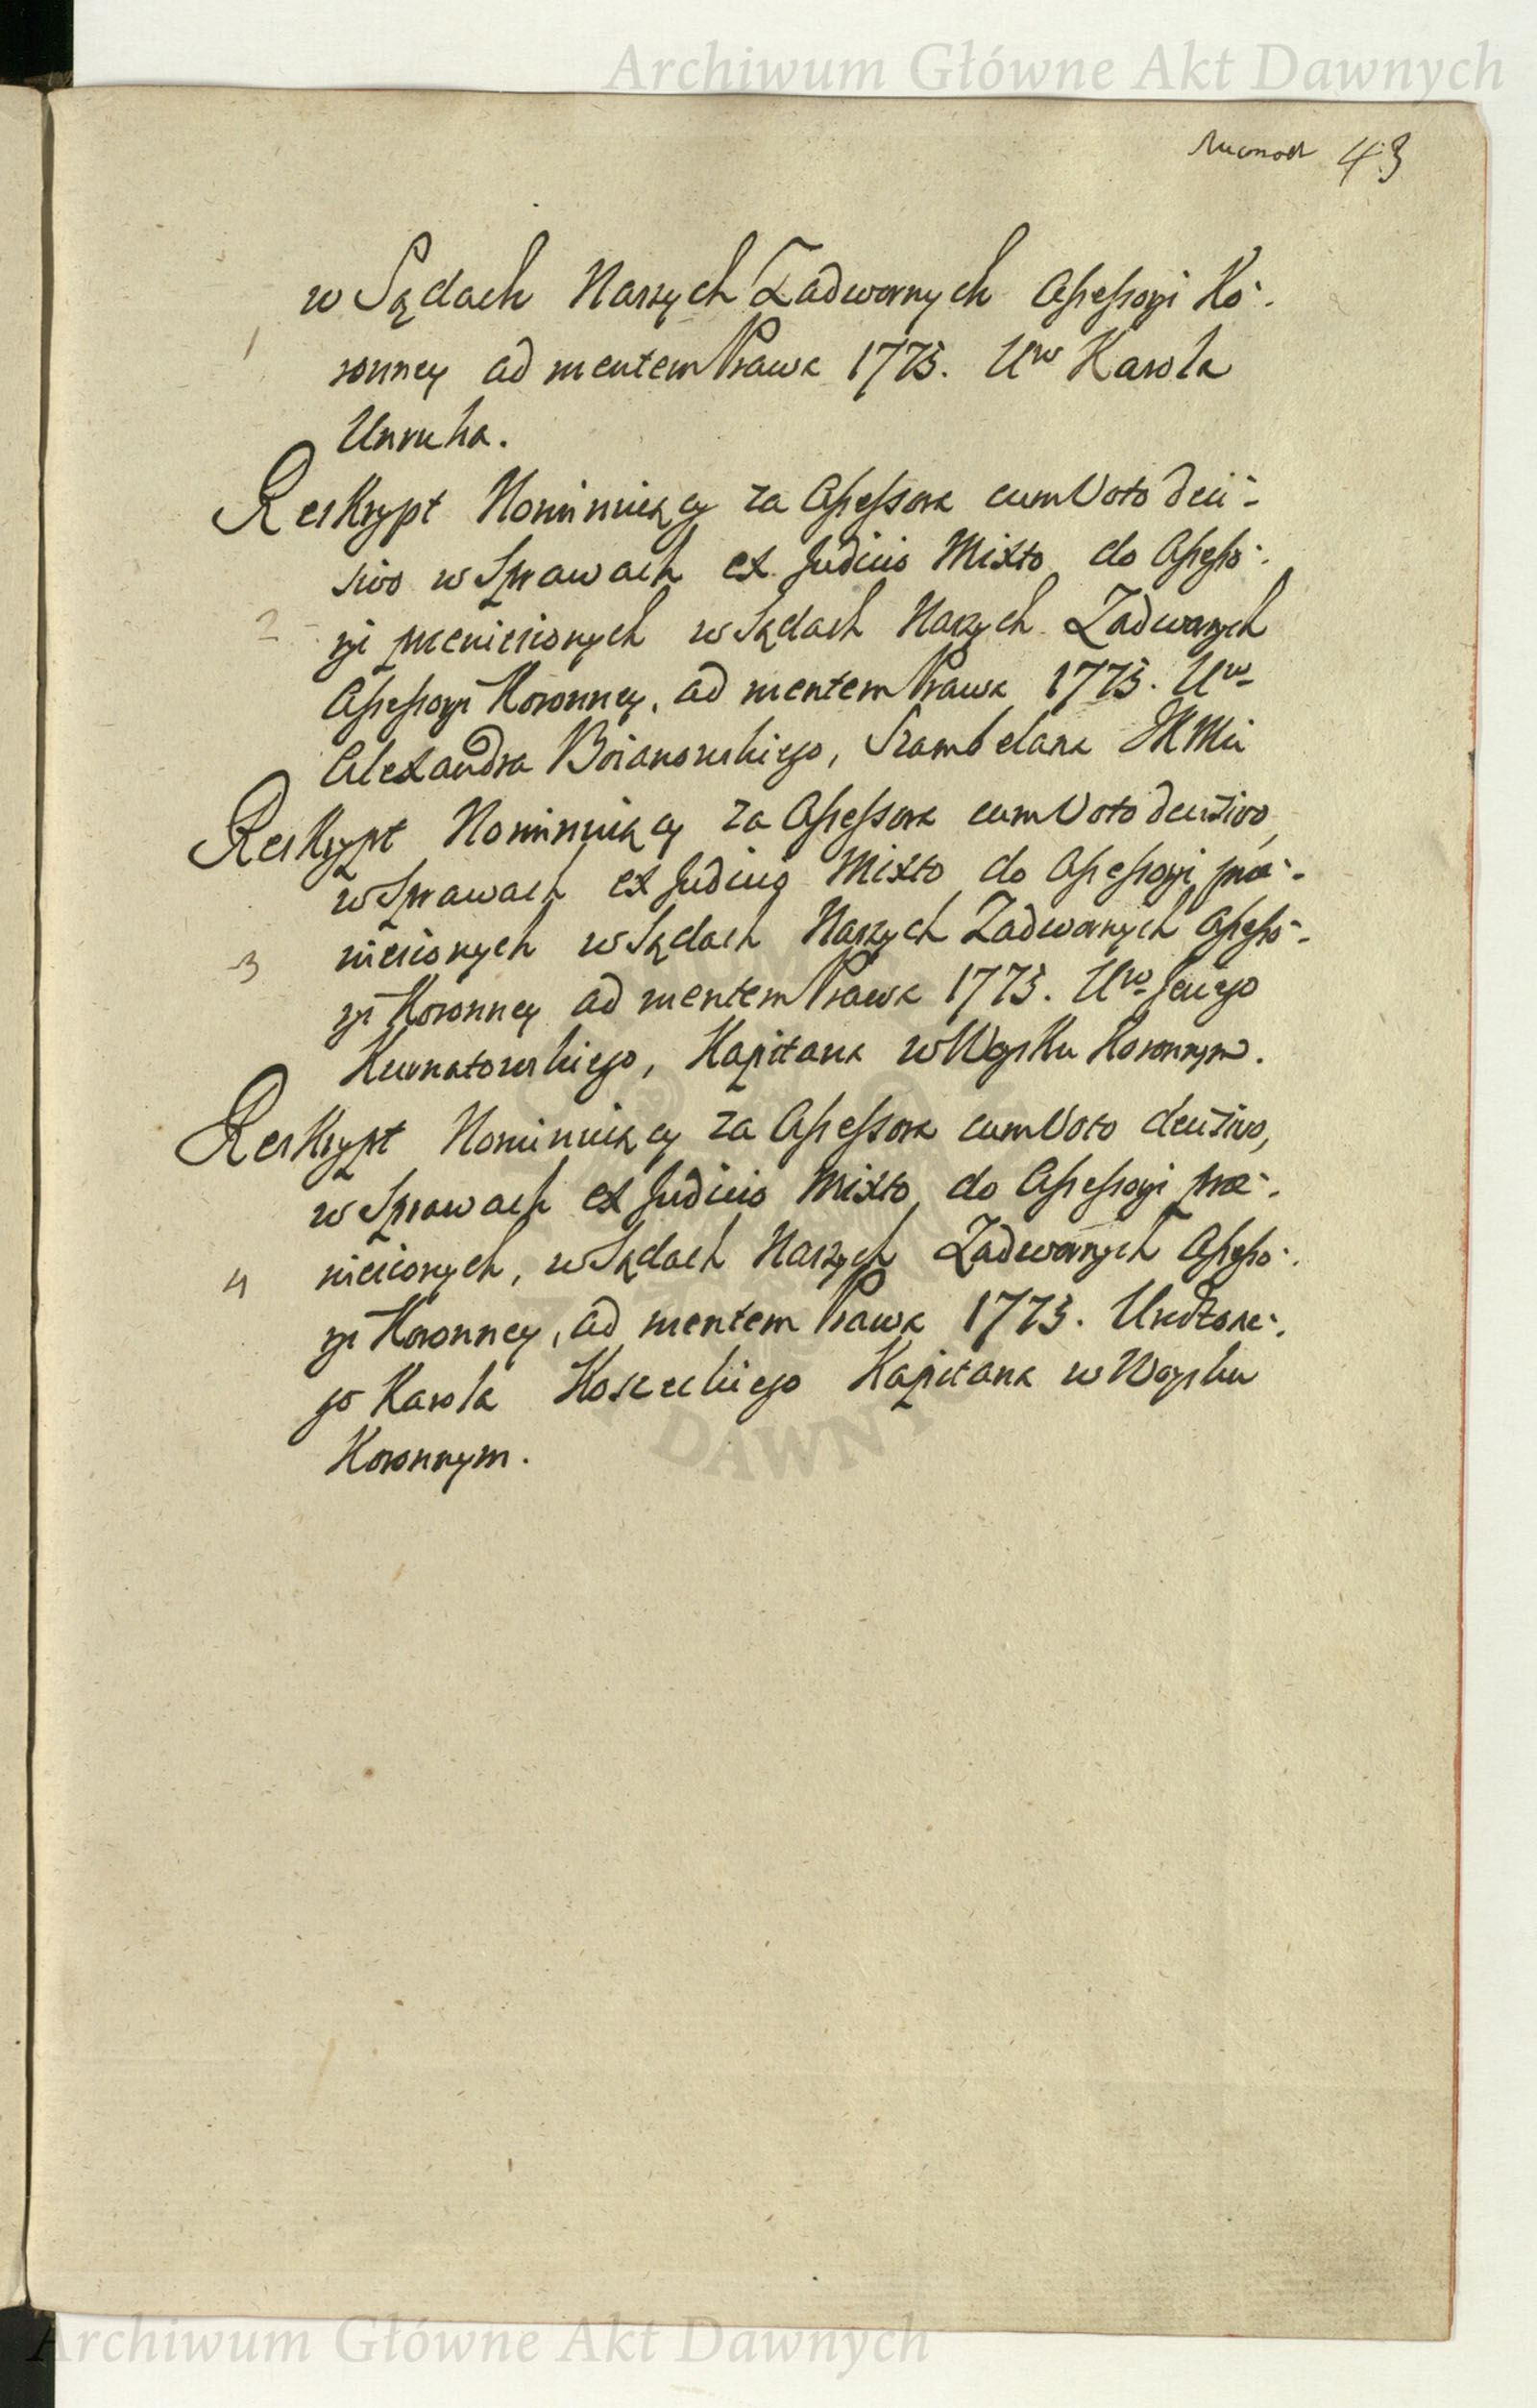 Archiwum Główne Akt Dawnych
43
w Sądach Naszych Zadwornych Assessoryi Ko-
1
ronney ad mentem Prawa 1775. Uro Karola
Unruha.
Reskrypt Nominuiący za Assessora cum Voto deci-
sivo w Sprawach ex Judicio Mixto do Assesso-
2
ryi przeniesionych w Sądach Naszych Zadwornych
Assessoryi Koronney, ad mentem Prawa 1775. Uro
Alexandra Boianowskiego, Szambelana JKMci
Reskrypt Nominuiący za Assessora cum Voto decisivo,
w Sprawach ex Judicio Mixto do Assessoryi prze-
3
niesionych w Sądach Naszych Zadwornych Assesso-
ryi Koronney ad mentem Prawa 1775. Uro Jerzego
Kurnatowskiego, Kapitana w Woysku Koronnym.
Reskrypt Nominuiący za Assessora cum Voto decisivo,
w Sprawach ex Judicio Mixto, do Assessoryi prze-
4
niesionych, w Sądach Naszych Zadwornych Assesso-
ryi Koronney, ad mentem Prawa 1775. Urodzone-
go Karola Koseckiego Kapitana w Woysku
Koronnym.
DAWNYCH
Archiwum Główne Akt Dawnych